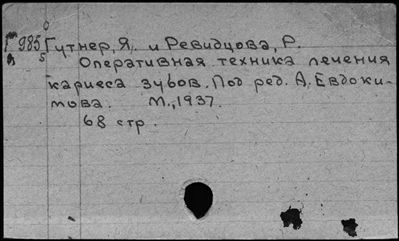 Г 985 Гутнер, Я. и Ревидцова, Р.
Оперативная техника лечения
кариеса зубов. Под ред. А. Евдоки-
мова. М., 1937.
68 стр.